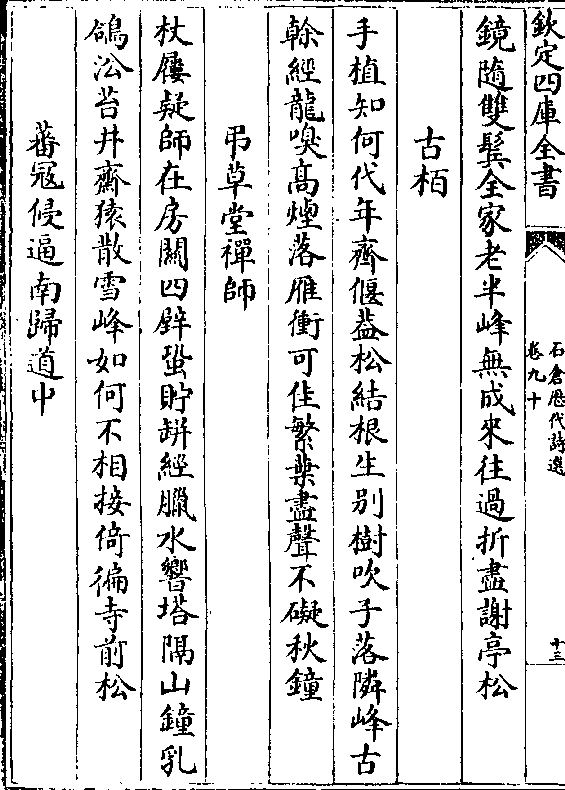 欽定四庫全書
石倉歴代詩選
卷九十
十三
鏡隨雙髩全家老半峰無成來往過折盡謝亭松
古栢
手植知何代年齊偃葢松結根生别樹吹子落隣峰古
榦經龍嗅髙煙落雁衝可佳繁葉盡聲不礙秋鐘
弔草堂禪師
杖屨疑師在房關四壁蛩貯缾經臘水響塔隔山鐘乳
鴿沿苔井齋猿散雪峰如何不相接倚徧寺前松
蕃冦侵逼南歸道中